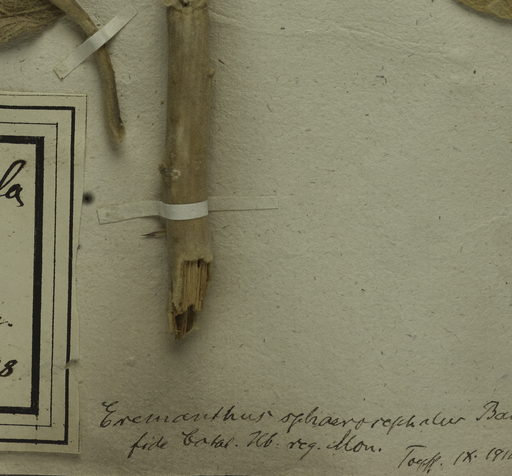 la
8
Eremanthus sphaerocephalus Ba
fide Catal. Hb. reg. Mon.
IX. 191